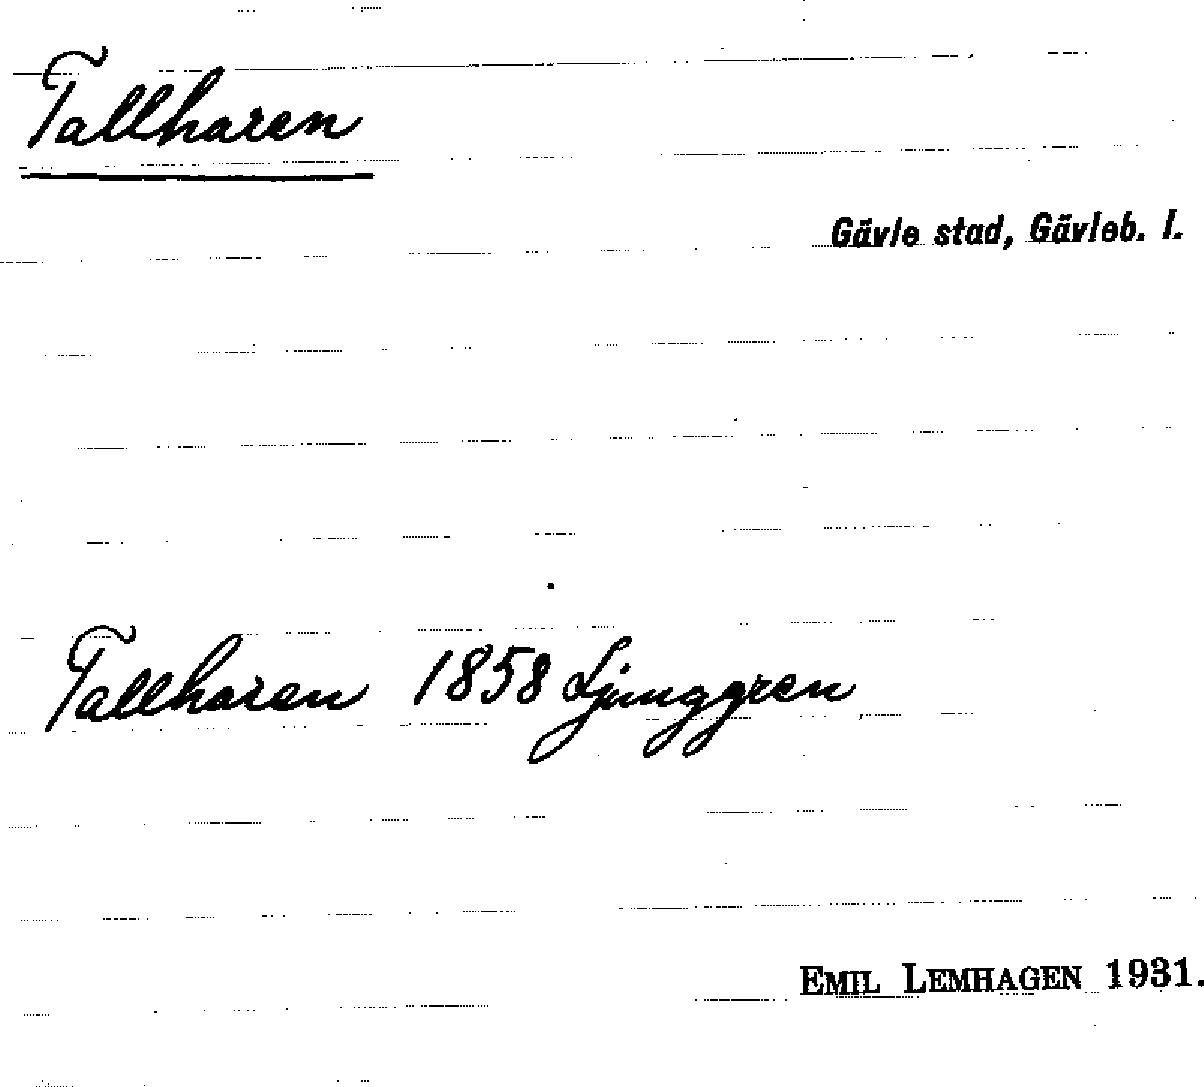 Tallharen
Gävle stad, Gävleb. l.
Tallharen 1858 Ljunggren
EMIL LEMHAGEN 1931.